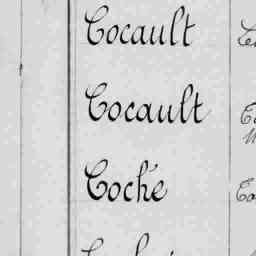 Cocault
Cocault
Coché